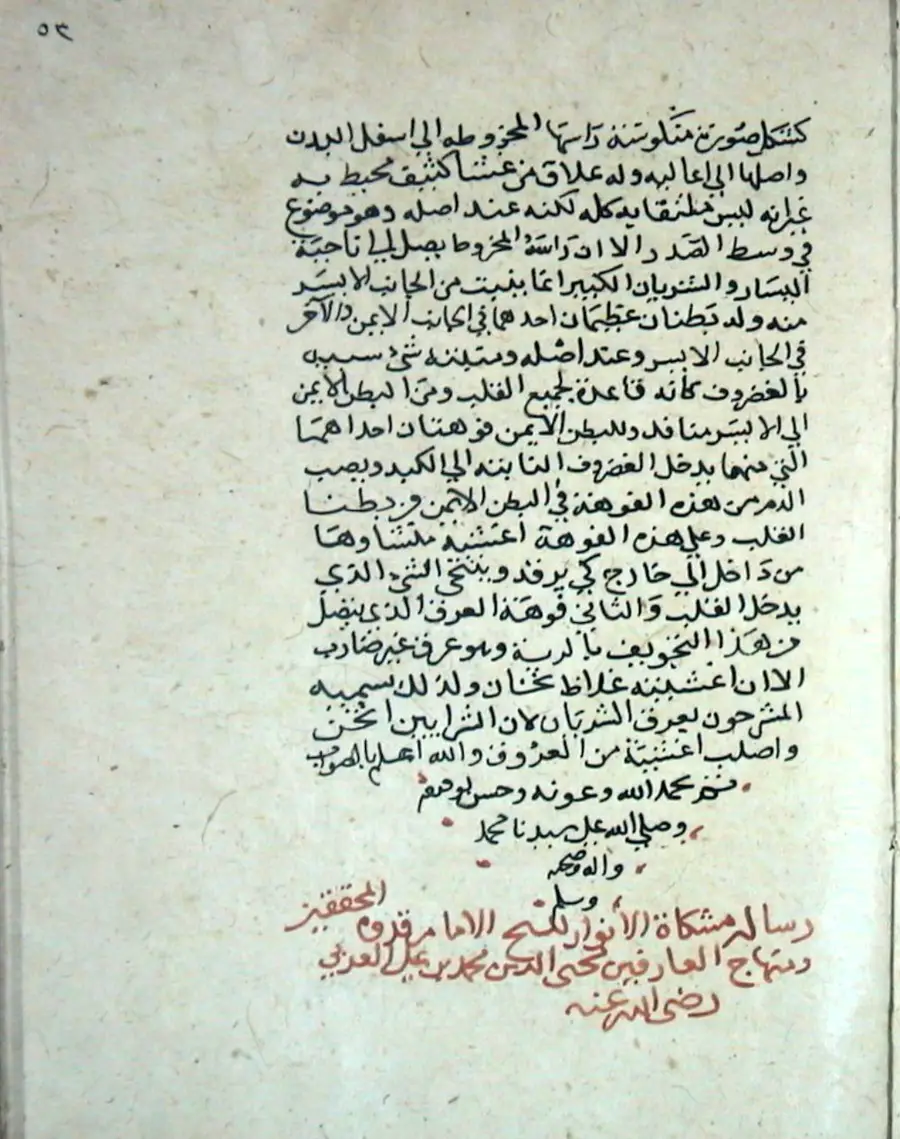 ٥٣
كشكل صنوبرة منكوسة راسها المخروطه الي اسفل البدن
واصلها الي اعاليه وله علاق من غشا كثيف محيط به
غيرانه ليس ملتقا به كله لكنه عند اصله وهو موضوع
في وسط الصدر الا ان راسه المخروط يصل الي ناحية
اليسار والشريان الكبير انما ينبت من الجانب الايسر
منه وله بطنان عظيمان احدهما في الجانب الايمن والآخر
في الجانب الايسر وعند اصله ومنبته شئ شبيه
بالغضروف كانه قاعدة لجميع القلب ومن البطن الايمن
الي الايسر منافذ وللبطن الايمن فوهتان احداهما
التي منها يدخل الغضروف النابته الي الكبد ويصب
الدم من هذه الفوهة في البطن الايمن من بطنا
القلب وعلي هذه الفوهة اغشية منشاوها
من داخل الي خارج كي يرفد وينتحي الشئ الذي
يدخل القلب والثاني فوهة العرق الذي يتصل
من هذا التجويف بالرية وهو عرق غير ضارب
الا ان اغشيته غلاظ ثخان ولذلك يسميه
المشرحون بعرق الشريان لان الشرايين اثخن
واصلب اغشية من العروق والله اعلم بالصواب
تم بحمد الله وعونه وحسن توفيقه
وصلي الله علي سيدنا محمد
واله وصحبه
وسلم
رسالة مشكاة الأنوار للشيخ الامام قدوة المحققين
ومنهاج العارفين محيى الدين محمد بن علي العربي
رضى الله عنه